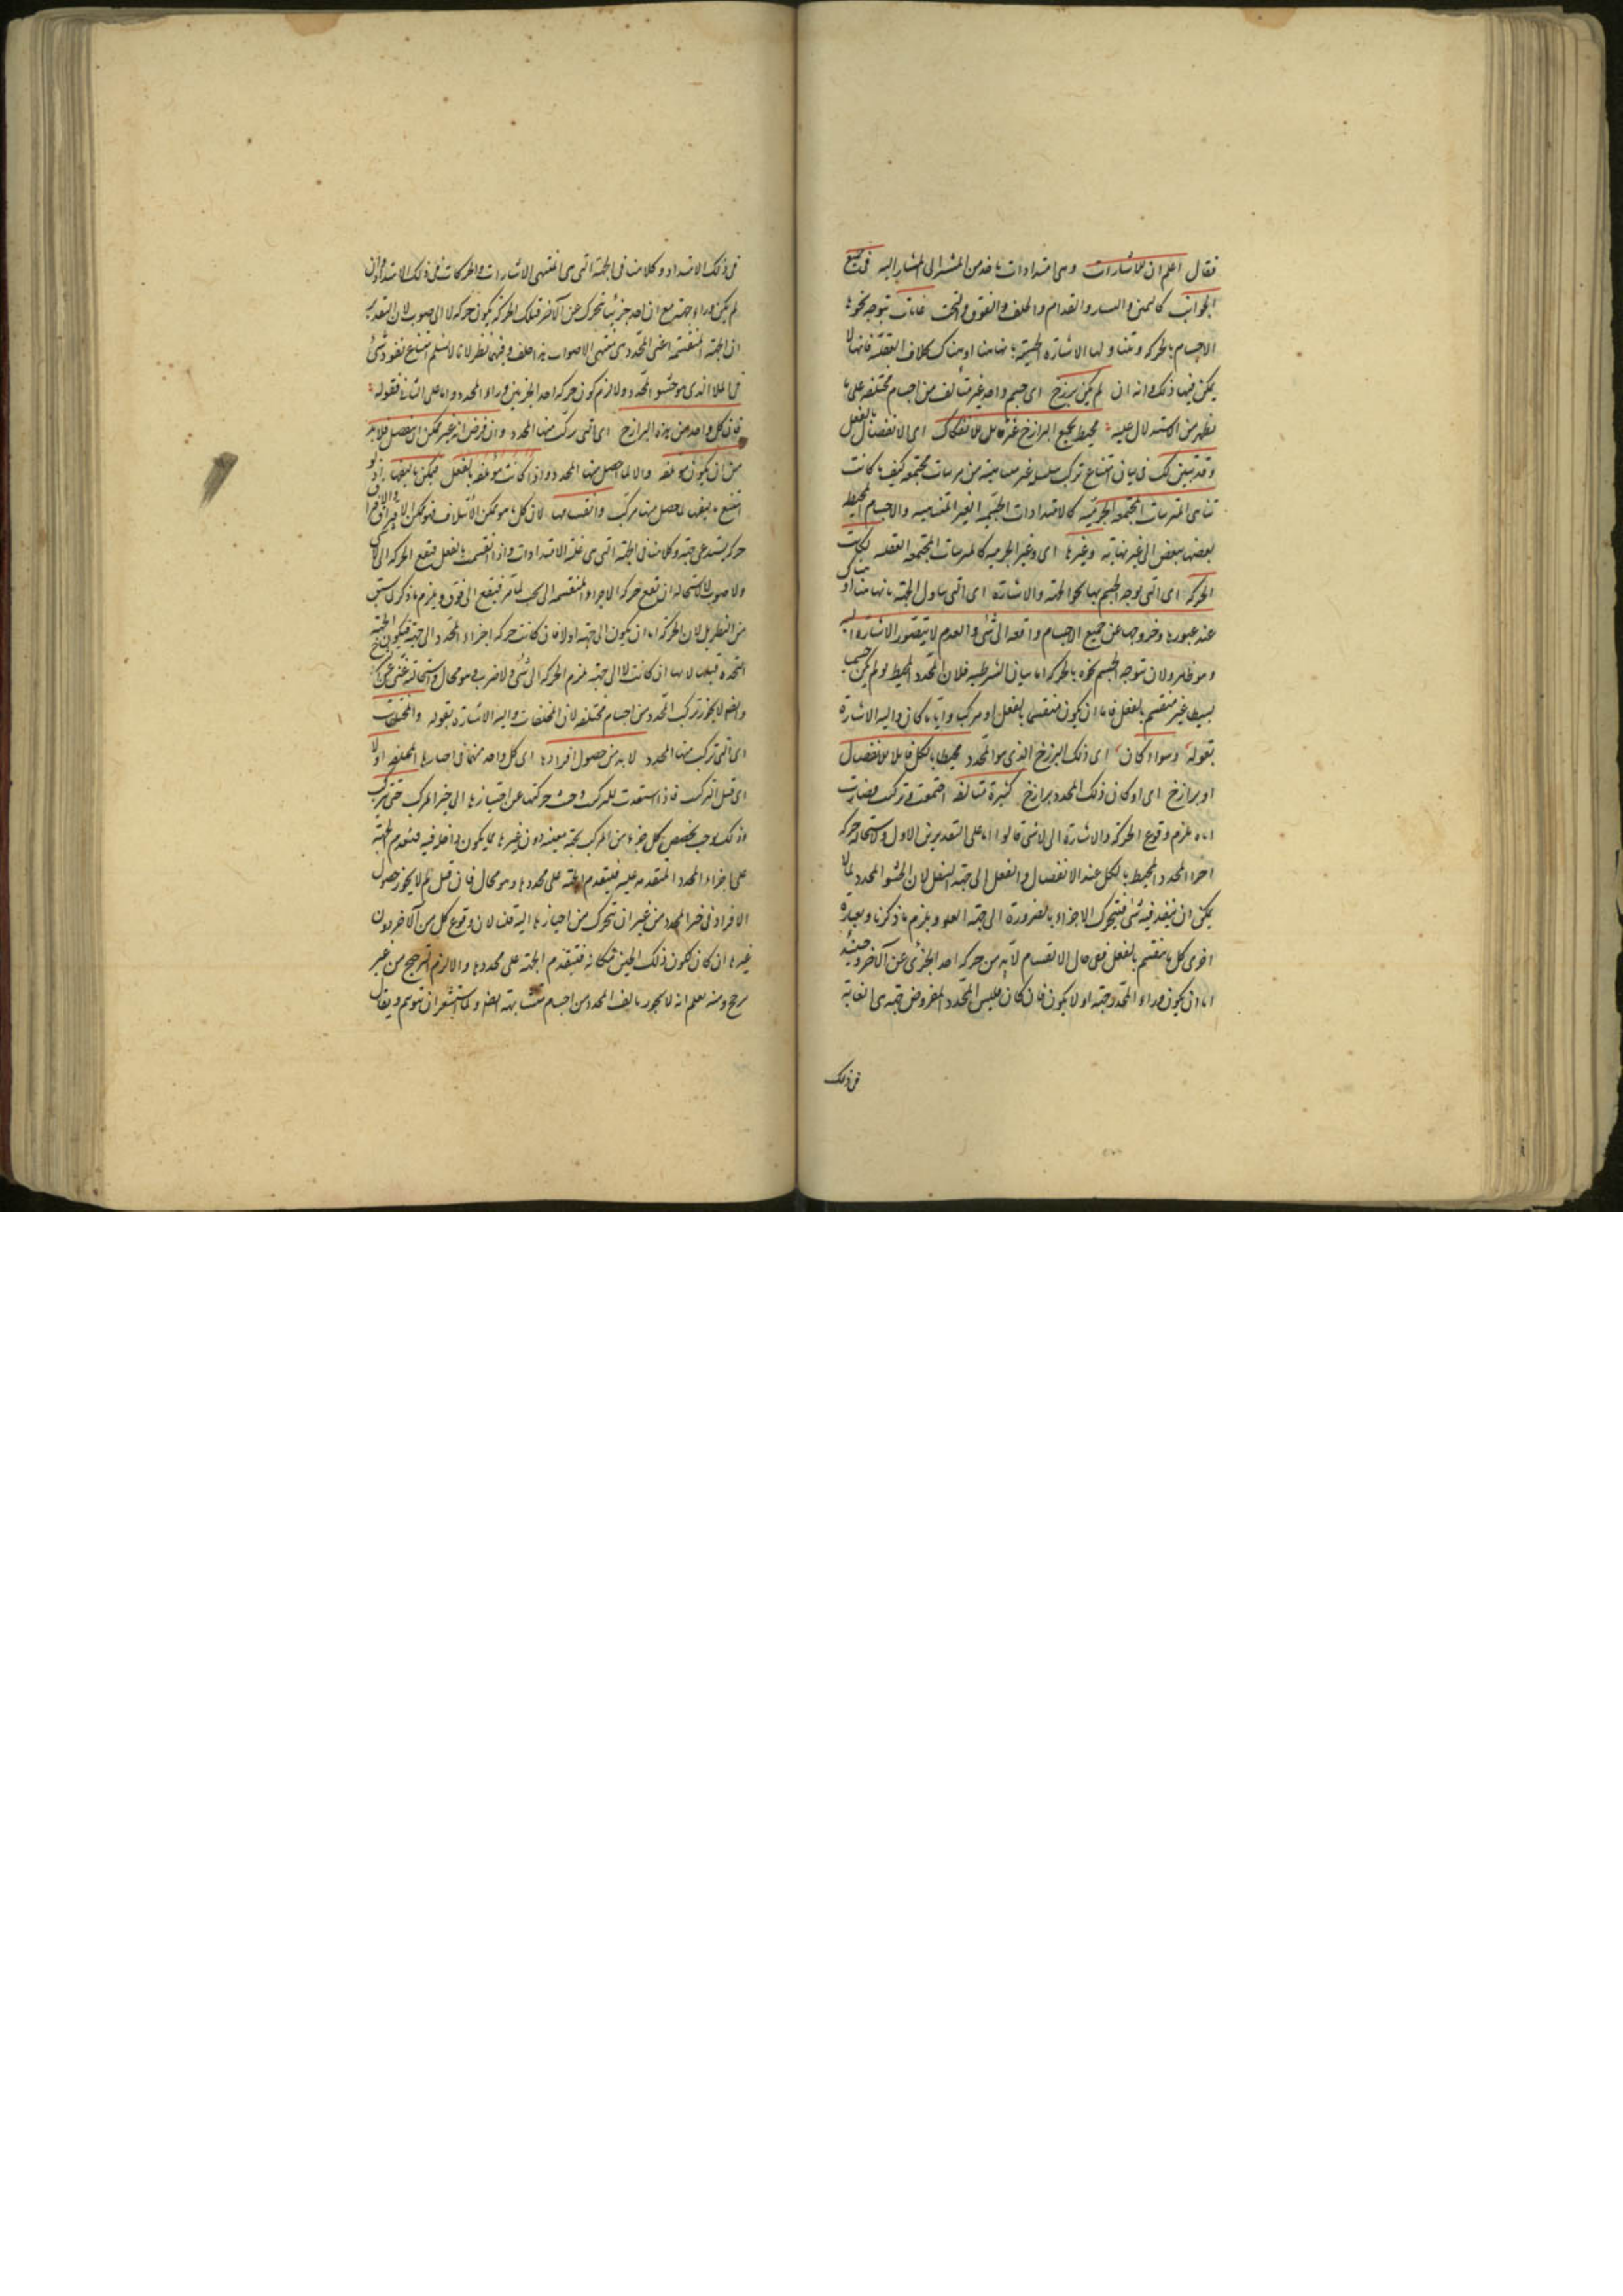 فقال اعلم ان للاشارات وهى امتدادات تاخذ من المشير الى المشار اليه فى جميع
الجوانب كاليمين واليسار والقدام والخلف والفوق والتحت غايات يتوجه نحوها
الاجسام بالحركة ويتناولها الاشارة الحسية بانها هنا او هناك بخلاف العقلية فانها لا
يمكن فيها ذلك وانه ان لم يكن برزخ اى جسم واحد غير متالف من اجسام مختلفة على ما
يظهر من الاستدلال عليه محيط بجميع البرازخ غير قابل للانفكاك اى الانفصال بالفعل
وقد تبين لك فى بيان امتناع تركب سلسلة غير متناهية من مرتبات مجتمعة كيف ما كانت
تناهى المترتبات المجتمعة الجرمية كالامتدادات الجسمية الغير المتناهية والاجسام المحيط
بعضها ببعض الى غير نهاية وغيرها اى وغير الجرمية كالمرتبات المجتمعة العقلية لكانت
الحركة اى التى يوجه الجسم بها نحو الجهة والاشارة اى التى يتناول الجهة بانها هنا او هناك
عند عبورها وخروجها عن جميع الاجسام واقعة الى لا شئ والعدم لا يتصور الاشارة اليه
وهو ظاهر ولان يتوجه الجسم نحوه بالحركة اما بيان الشرطية فلان المحدد المحيط لو لم يكن جسما
بسيطا غير منقسم بالفعل فاما ان يكون منقسما بالفعل او مركبا وايا ما كان واليه الاشارة
بقوله وسواء كان اى ذلك البرزخ الذى هو المحدد محيطا بالكل قابلا للانفصال
او برازخ اى او كان ذلك المحدد برازخ كثيرة متالفة اجتمعت وتركبت فصارت
اياه يلزم وقوع الحركة والاشارة الى لا شئ قالوا اما على التقدير من الاول ولاستحالة حركة
اجزاء المحدد المحيط بالكل عند الانفصال والفعل الى جهة السفل لان الحشو المحدد ملا لا
يمكن ان ينفذ فيه شئ فيتحرك الاجزاء بالضرورة الى جهة العلو ويلزم ما ذكرنا وبعبارة
اخرى كل ما ينقسم بالفعل ففى حال الانقسام لا بد من حركة احد الجزئين عن الآخر وحينئذ
اما ان يكون وراء المحدد جهة او لا يكون فان كان فليس المحدد المفروض جهة هى الغاية
فى ذلك
فى ذلك الامتداد وكلامنا فى الجهة التى هى منتهى الاشارات والحركات فى ذلك الامتداد وان
لم يكن وراءه جهة مع ان احد جزئيها تحرك عن الآخر فتلك الحركة يكون حركة لا الى صوب لان التقدير
ان الجهة المنقسمة اعنى المحدد هى منتهى الاصواب هذا خلف وفيهما نظر لانا لا نسلم امتناع نفوذ شئ
فى الملا الذى هو حشو المحدد ولا لزوم كون حركة احد الجزئين وراء المحدد واما على الثانى فقوله
فان كل واحد من هذه البرازخ اى التى تركب منها المحدد وان فرض انه غير ممكن ان ينفصل فلا بد
من ان يكون مؤلفة والا لما حصل منها المحدد واذا كانت مؤلفة بالفعل فيمكن تاليفها اذ لو
امتنع تاليفها لما حصل منها مركب وانفسامها لان كل ما هو ممكن الائتلاف فهو ممكن الافتراق والافتراق
حركة يستدعى جهة وكلامنا فى الجهة التى هى غاية الامتدادات واذا انقسمت بالفعل فيقع الحركة الى لا شئ
ولا صوب لاستحالة ان يقع حركة الاجزاء المنقسمة الى تحت لما مر فيقع الى فوق ويلزم ما ذكر لما سبق
من النظر بل لان الحركة اما ان يكون الى جهة اولا فان كانت حركة اجزاء المحدد الى جهة فيكون الجهة
المحدده قبلها لا بها وان كانت لا الى جهة يلزم الحركة الى لا شئ ولا ضرب وهو محال واستحالته غنى عن الشرح
وايضا لا يجوز تركب المحدد من اجسام مختلفة لان المختلفات واليه الاشارة بقوله والمختلفات
اى التى تركب منها المحدد لا بد من حصول افرادها اى كل واحد منهما فى احيازها المختلفة اولا
اى قبل التركب فاذا استعدت للتركب وجب حركتها عن احيازها الى حيز المركب حتى يتركب
اذ ذلك وجب تخصص كل جزء من المركب بجهة معينة دون غيرها مما يكون داخلة فيه فتقدم الجهة
على اجزاء المحدد المتقدمة عليه فيتقدم الجهة على محددها وهو محال فان قيل لم لا يجوز حصول
الافراد فى حيز المحدد من غير ان يتحرك من احيازها اليه قلنا لان وقوع كل من الآخر دون
غيرها ان كان لكون ذلك الحيز مكانه فيتقدم الجهة على محددها والا لزم الترجيح من غير
مرجح ومنه يعلم انه لا يجوز تالف المحدد من اجسام متشابهة ايضا ولما استشعر ان يتوهم ويقال